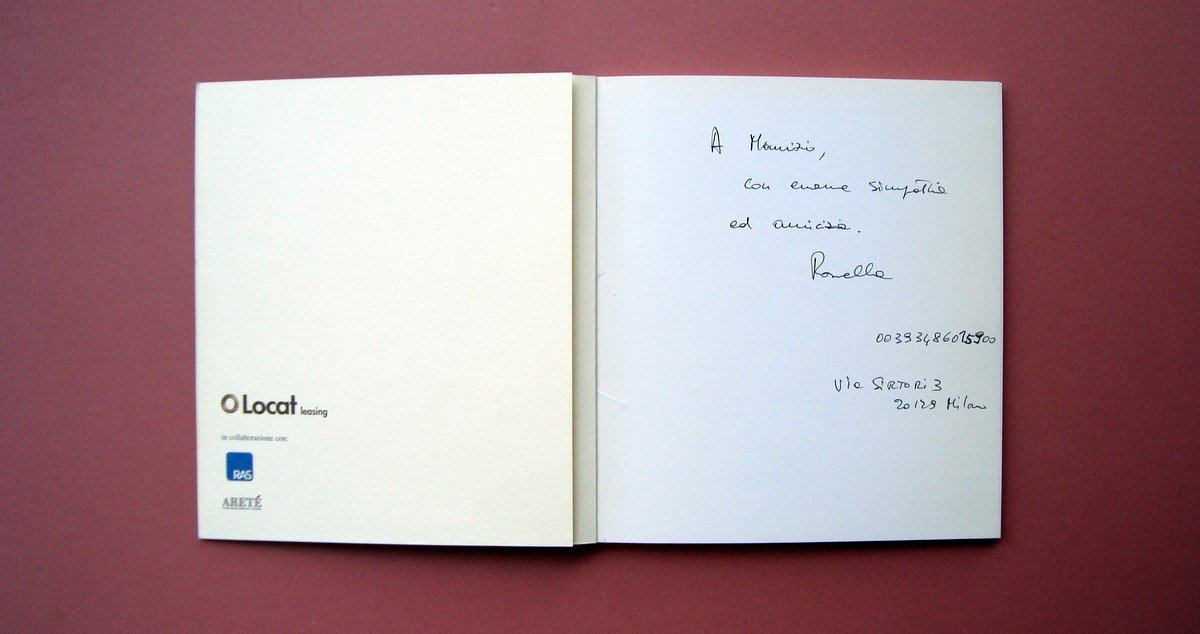 Locat leasing
in collaborazione con:
RAS
ARETÉ
A Maurizio,
con enorme simpatia
ed amicizia.
Via SIRTORI 3
20129 Milano